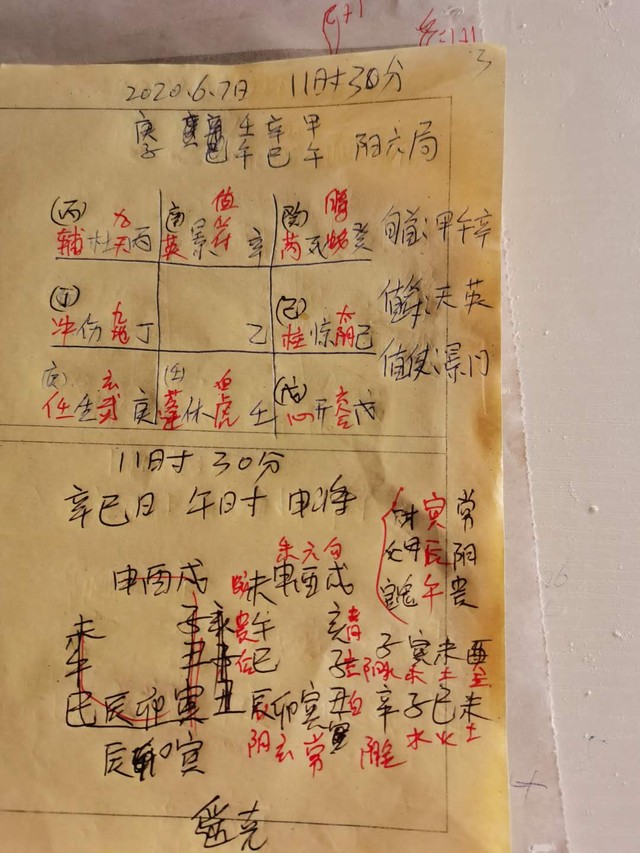 3
2020.6.7日 11时30分
庚 壬 辛 甲
子 午 巳 午 阳六局
(丙) 九天 值符 螣蛇
辅 杜 丙 英 景 辛 芮 死 癸
旬首:甲午辛
(丁) 九地 (己) 太阴
冲 伤 丁 乙 柱 惊 己
值符:天英
值使:景门
玄武 (壬) 白虎 (戊) 六合
任 生 庚 蓬 休 壬 心 开 戊
11时 30分
辛巳日 午时 申将
财 寅 常
甲 辰 阴
鬼 午 贵
申 酉 戌 未 申 酉 戌
未 贵 午 亥 青
午 巳 子 子 寅 未 酉
巳 辰 卯 寅 丑 辰 卯 寅 丑 白 辛 子 巳 未
阴 玄 常 水 火 土
辰 卯 寅
遥克